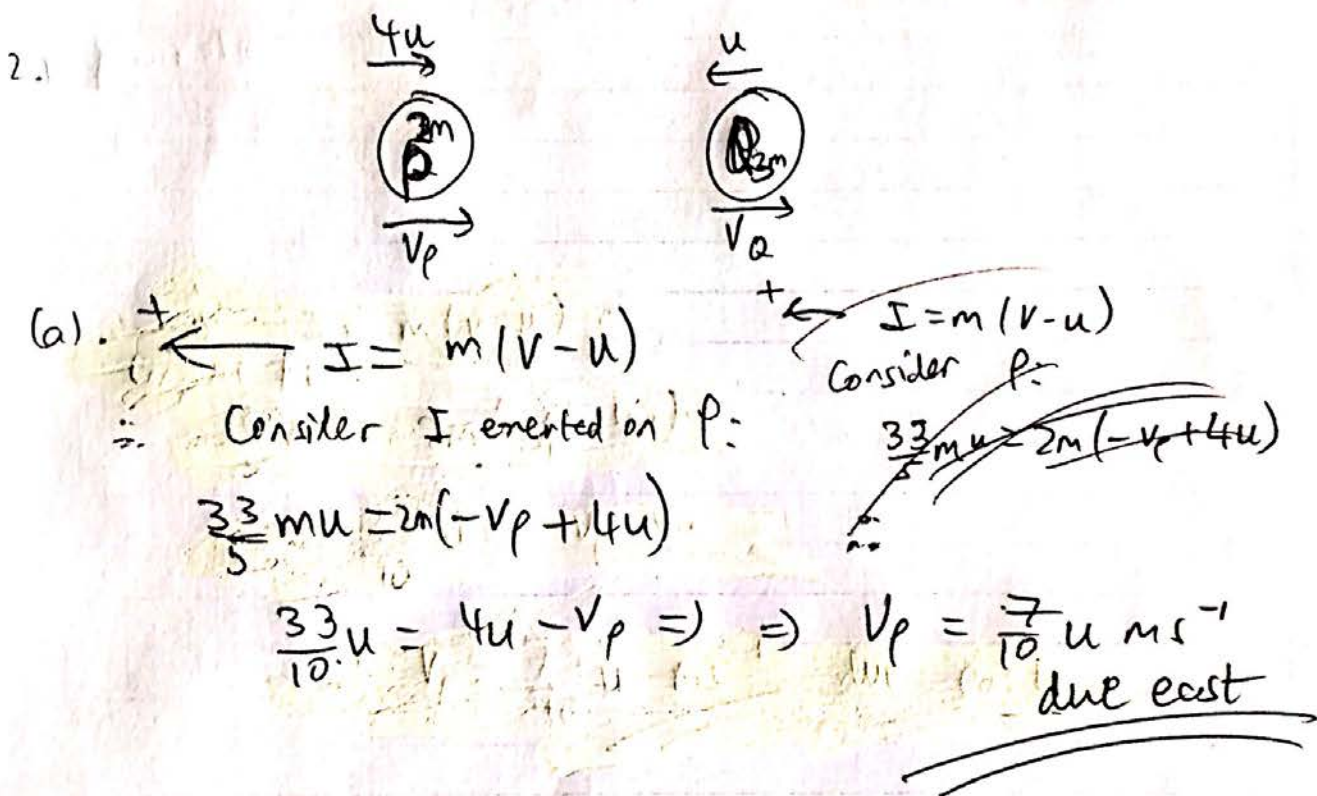 2.
4u u
2m 3m
P Q
Vp VQ
(a). + ← I = m(v-u)
∴ Consider I exerted on P:
33/5 mu = 2m(-Vp + 4u)
33/10 u = 4u - Vp => => Vp = 7/10 u ms⁻¹
due east
+ ← I = m(v-u)
Consider P:
33/5 mu = 2m(-Vp + 4u)